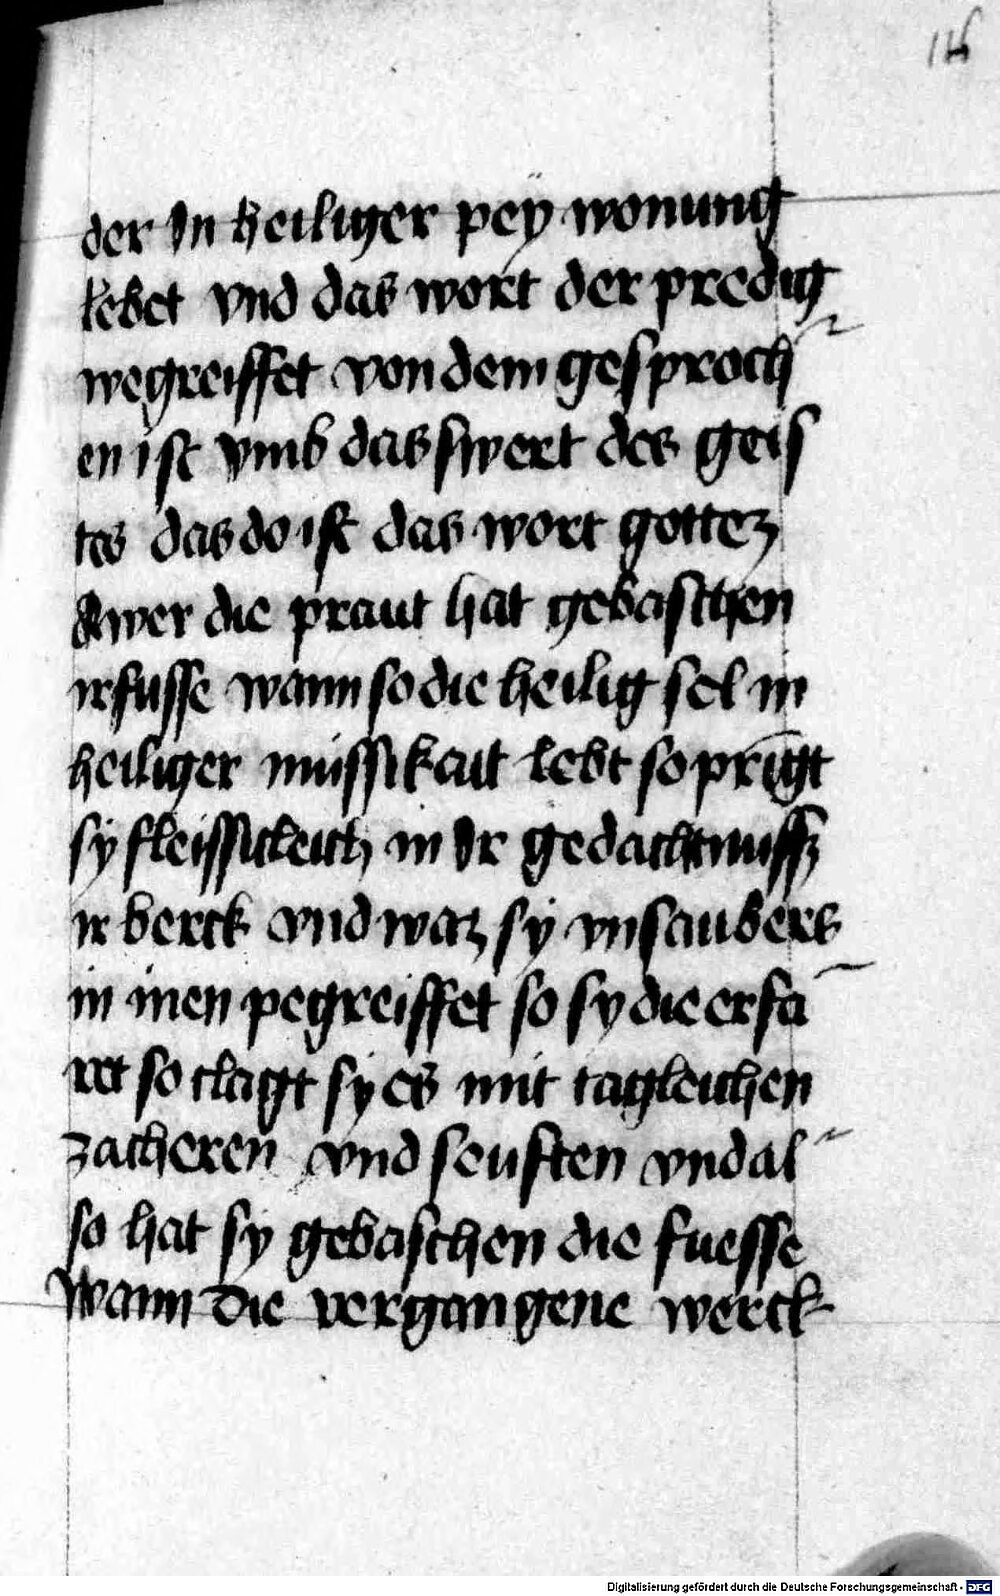 116
der In heiliger peÿ wonung
lebet vnd das wort der predig
wegreiffet von dem gesproch
en ist vmb das swert des geis
tes das do ist das wort gottez
Awer die praut hat gebaschen
ir fusse wann so die heilig sel in
heiliger mussikait lebt so prīgt
sy fleissicleich in Ir gedachtnussz
ir berck vnd waz sy vnsaubers
in inen pegreiffet so sy die erfa
ret so clagt sy es mit tagleichen
zacheren vnd seuften vnd al
so hat sy gebaschen die fuesse
Wann die vergangene werck
Digitalisierung gefördert durch die Deutsche Forschungsgemeinschaft - DFG